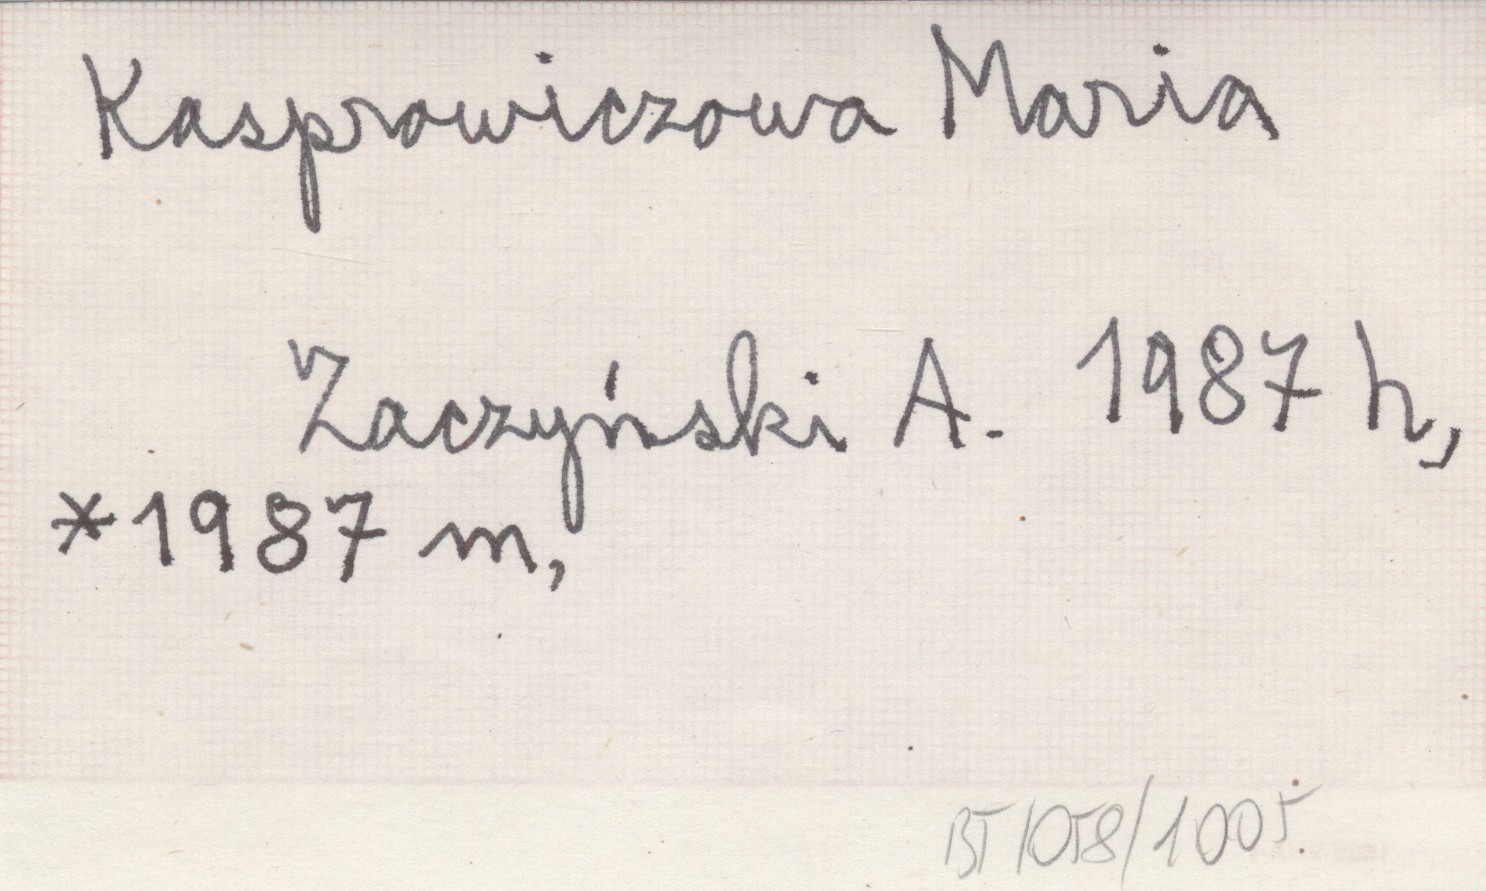 Kasprowiczowa Maria
Zaczyński A. 1987 h,
*1987 m,
BT/058/1005